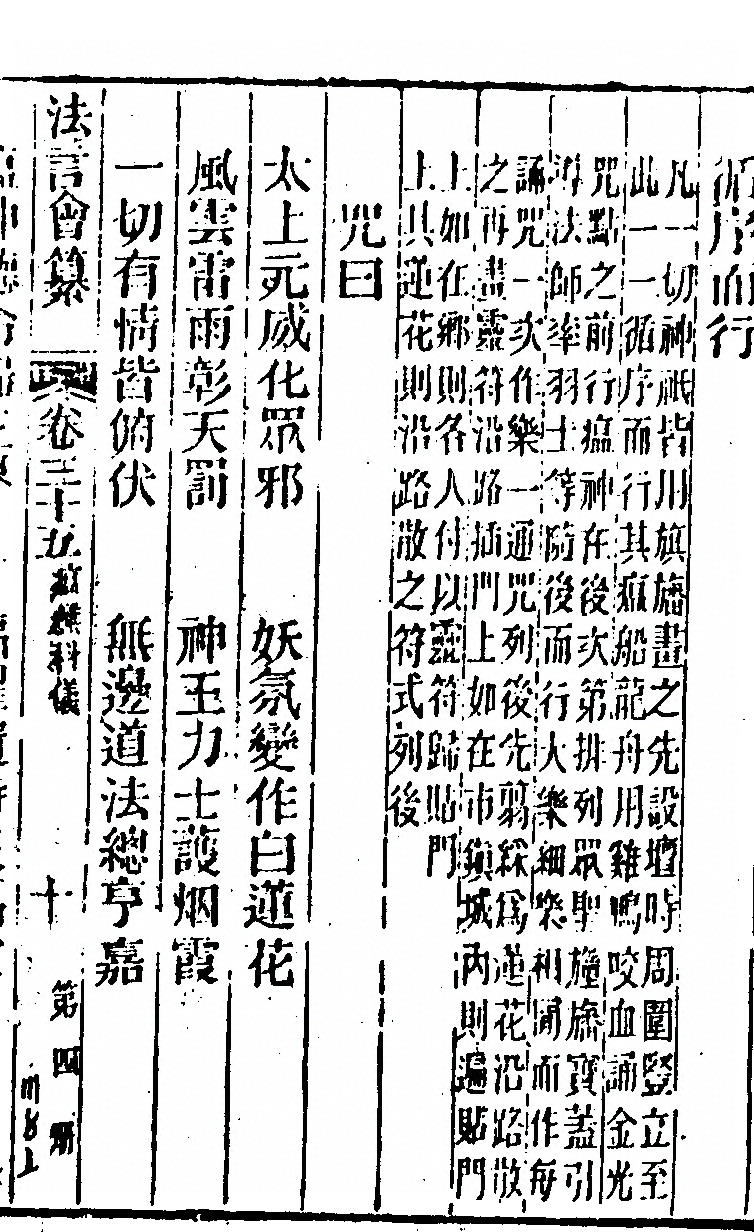 循序而行
凡一切神祇皆用旗旛畫之先設壇時周圍豎立至
此一一循序而行其瘟船龍舟用雞鳴咬血誦金光
咒點之前行瘟神在後次第排列眾聖旛旛寶蓋引
導法師率羽士等隨後而行大樂細樂相間而作每
誦咒一次作樂一通咒列後先剪綵為蓮花沿路散
之再畫靈符沿路插門上如在市鎮城內則遍貼門
上如在鄉則各人付以靈符歸貼門
上其蓮花則沿路散之符式列後
咒曰
太上元威化眾邪 妖氛變作白蓮花
風雲雷雨彰天罰 神王力士護烟霞
一切有情皆俯伏 無邊道法總亨嘉
法言會纂 卷三十九 科儀 十
第四册